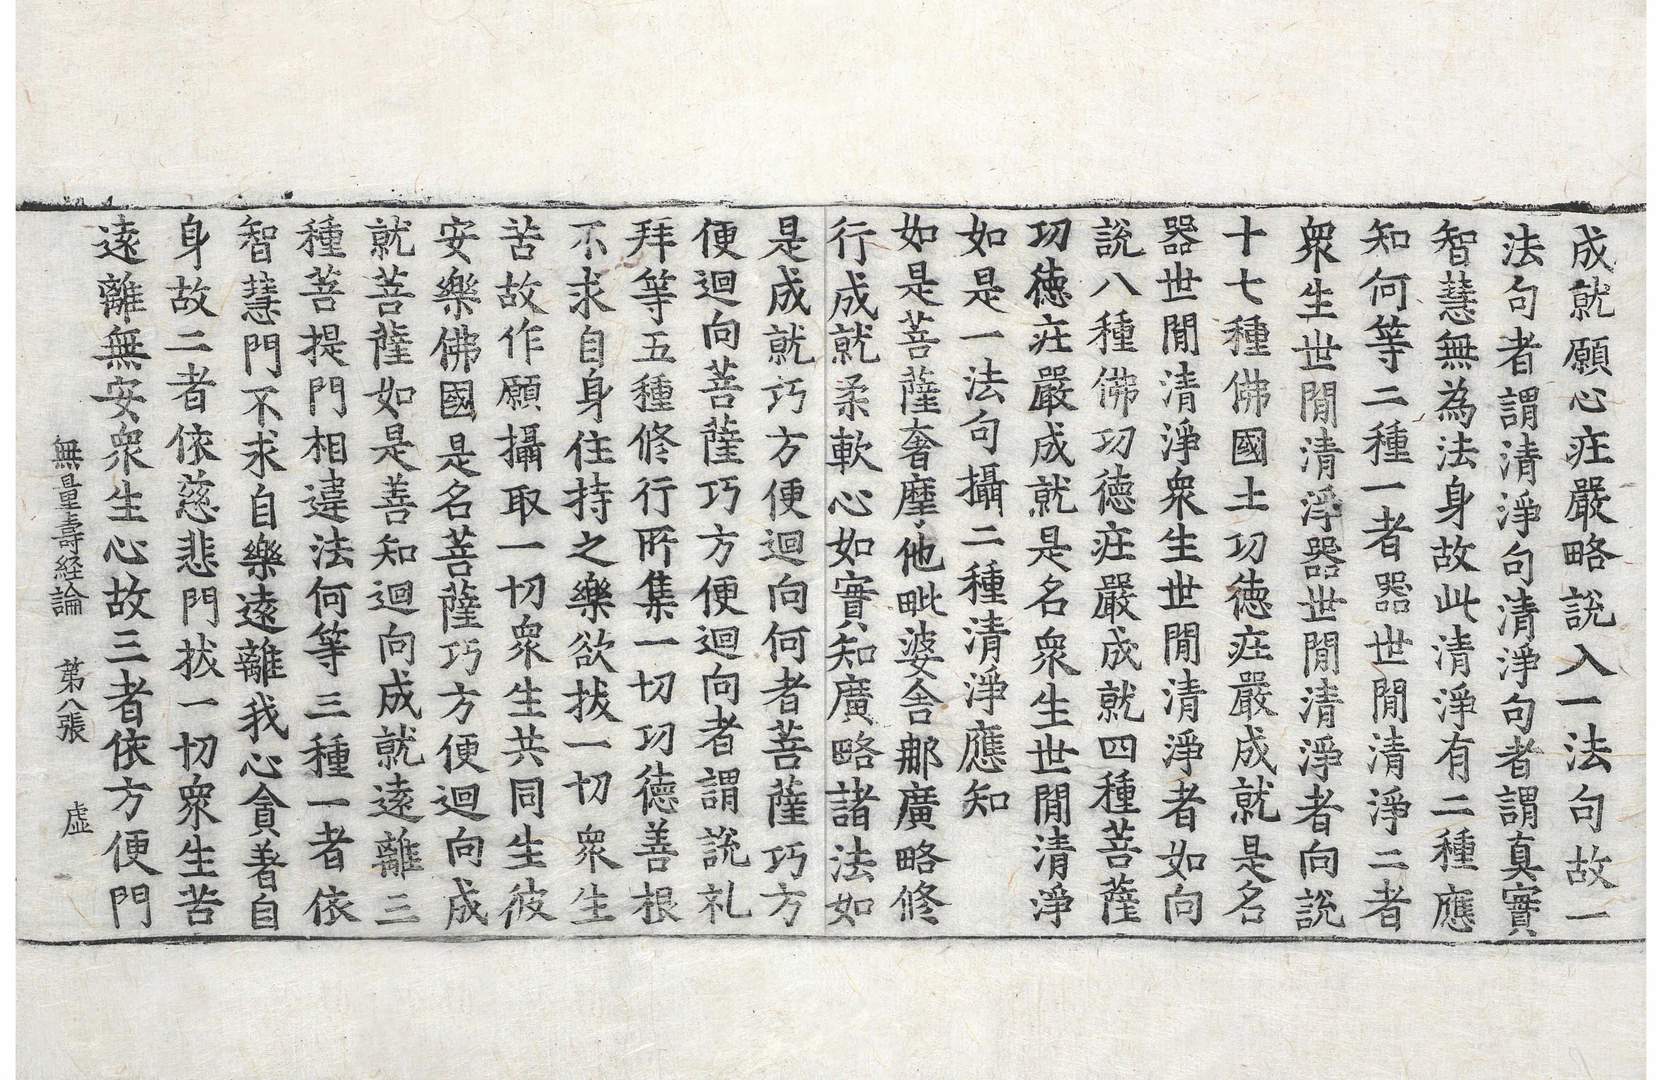 成就願心疘嚴略說入一法句故一
法句者謂清淨句清淨句者謂真實
智慧無為法身故此清淨有二種應
知何等二種一者器世閒清淨二者
衆生世閒清淨器世閒清淨者向說
十七種佛國土功徳疘嚴成就是名
器世閒清淨衆生世閒清淨者如向
說八種佛功徳疘嚴成就四種菩薩
功徳疘嚴成就是名衆生世閒清淨
如是一法句攝二種清淨應知
如是菩薩奢摩他毗婆舍那廣略修
行成就柔軟心如實知廣略諸法如
是成就巧方便迴向何者菩薩巧方
便迴向菩薩巧方便迴向者謂說礼
拜等五種修行所集一切功徳善根
不求自身住持之樂欲拔一切衆生
苦故作願攝取一切衆生共同生彼
安樂佛國是名菩薩巧方便迴向成
就菩薩如是善知迴向成就遠離三
種菩提門相違法何等三種一者依
智慧門不求自樂遠離我心貪著自
身故二者依慈悲門拔一切衆生苦
遠離無安衆生心故三者依方便門
無量壽経論 第八張 虛